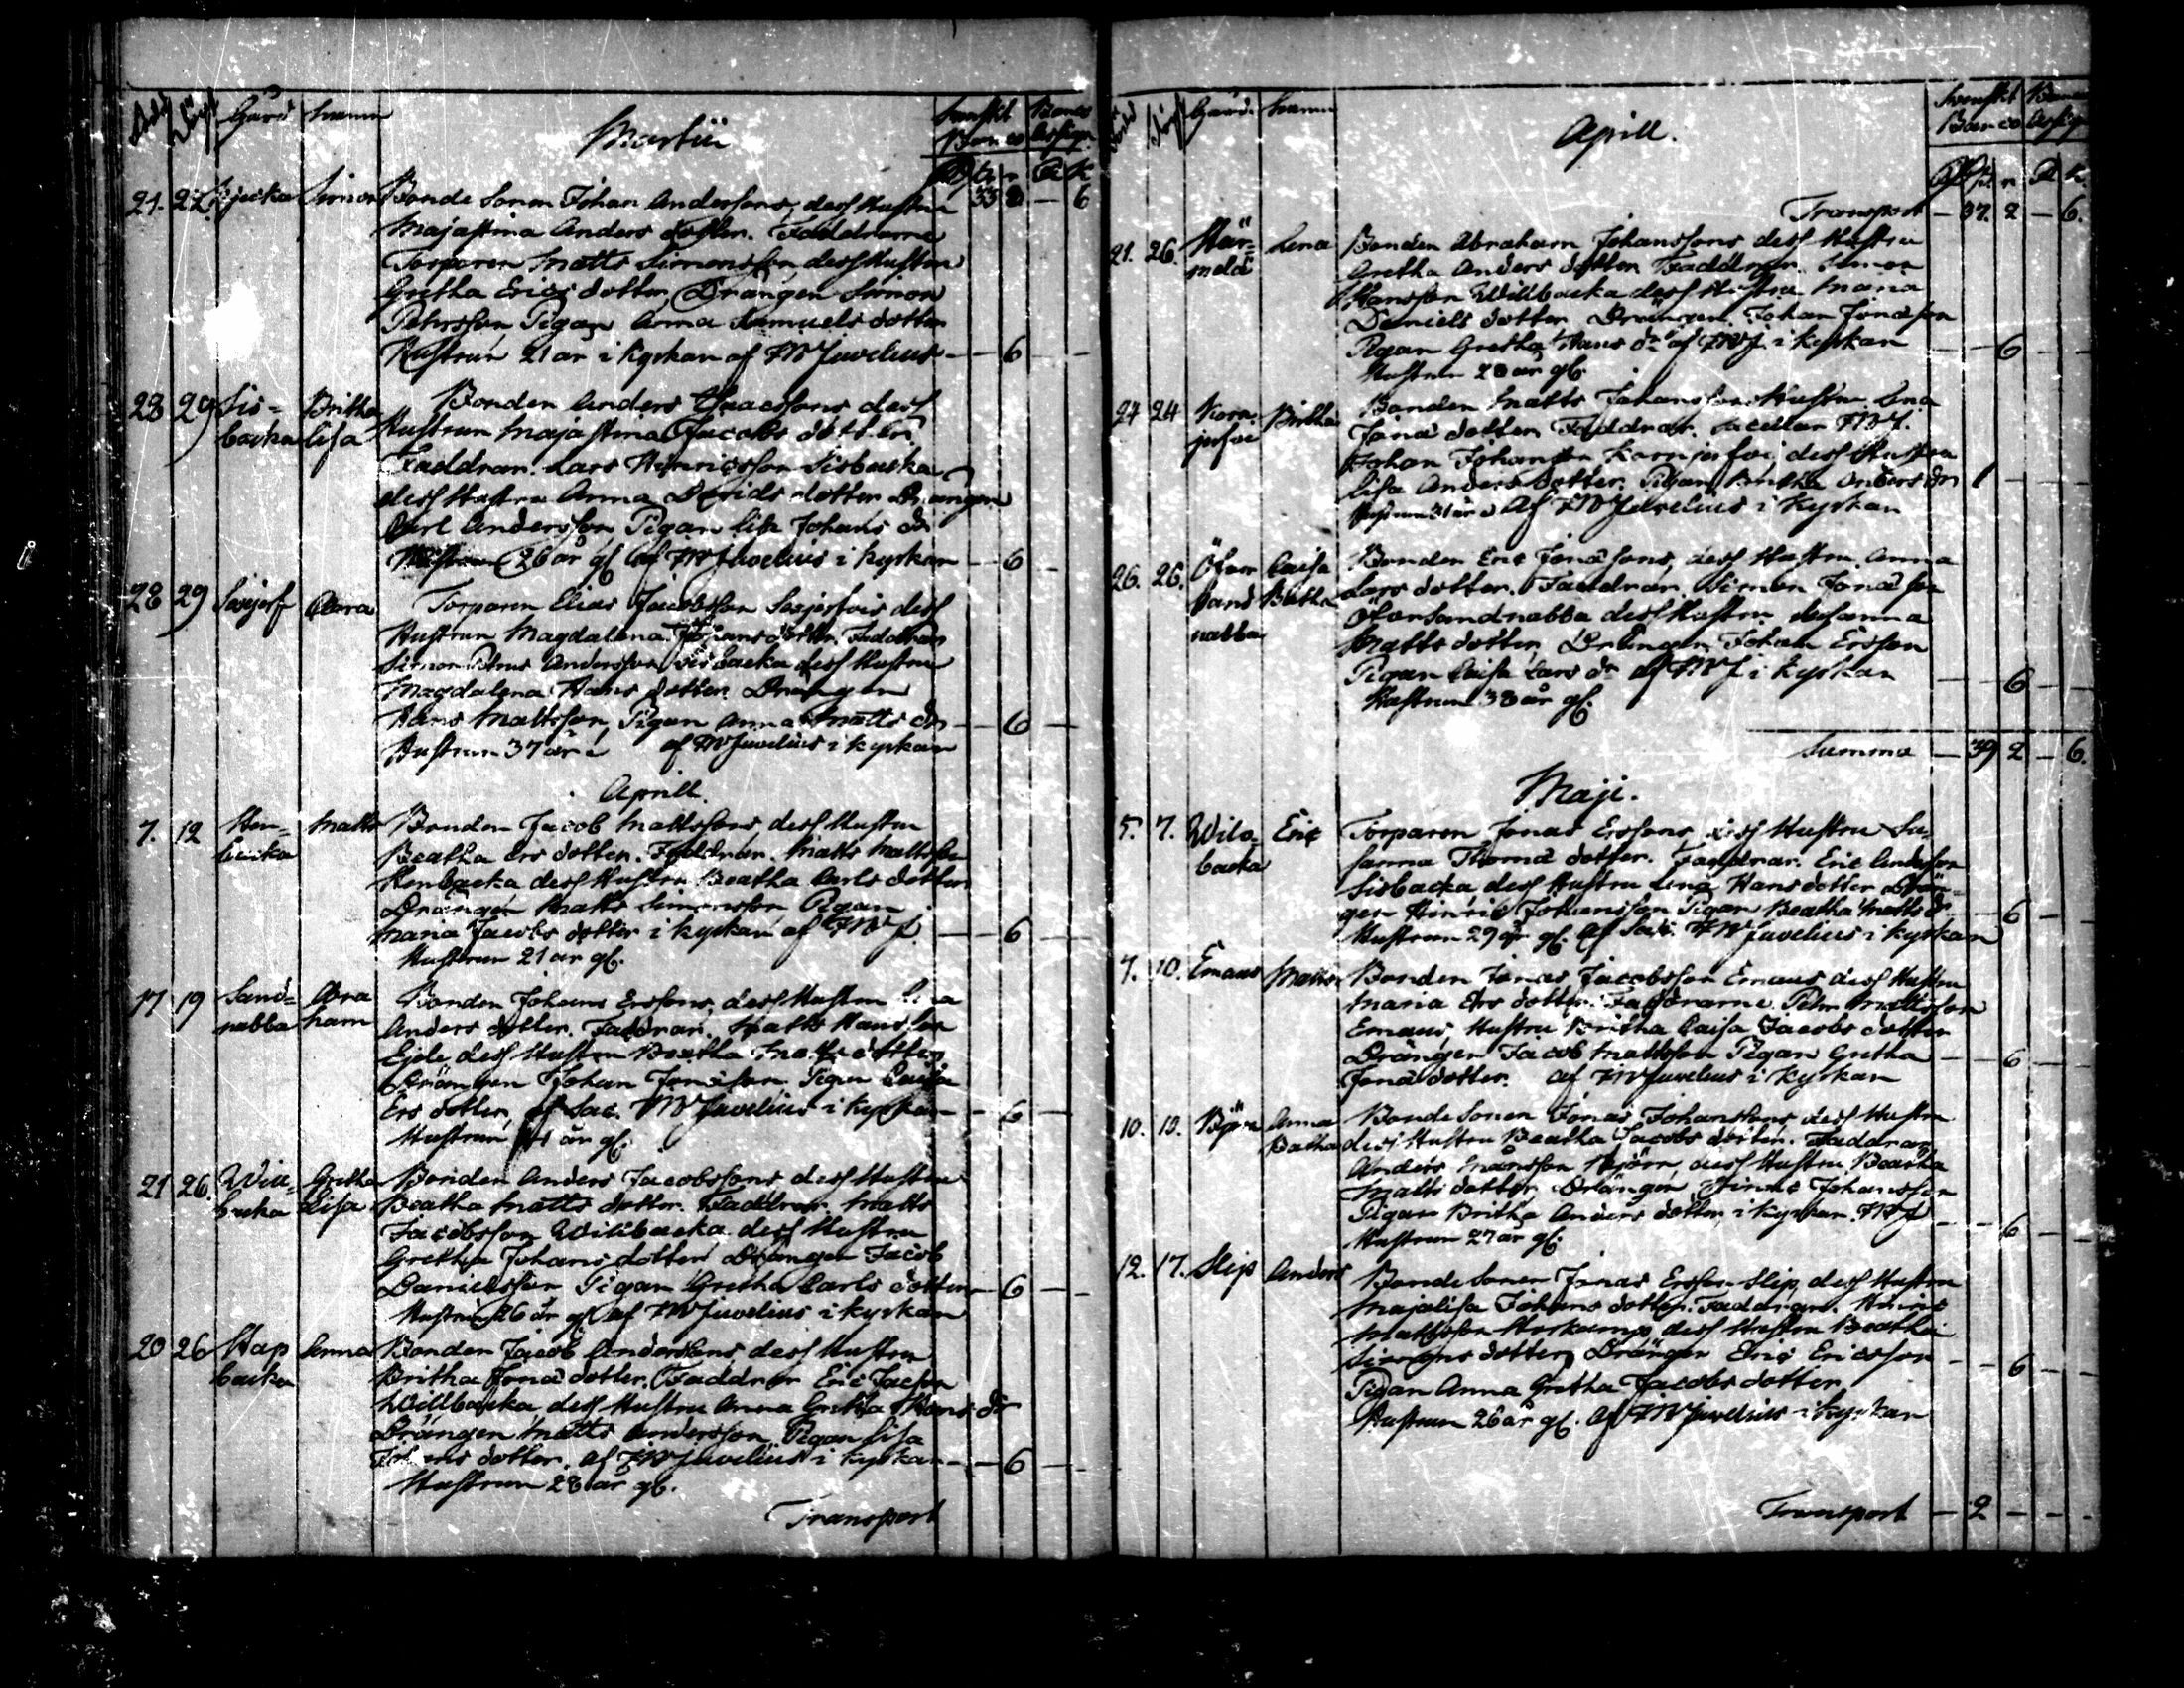 Gård Namn
Martii
Svenskt Banco
21. 22. Simon Bonde Sonen Johan Anderssons, dess Hustru 33 6
Majastina Anders dotter. Faddrarne
Torparen Matts Simonsson dess Hustru
Gretha Erics dotter, Drängen Simon
Pehrsson Pigan Anna Samuels dotter
Hustrun 21 år i kyrkan af FWJuvelius — 6 —
28 29 Sis= Britha Bonden Anders Isacssons dess
backa lisa Hustrun Majastina Jacobs dotter
Faddrar. Lars Hinricsson Sisbacka
dess Hustru Anna Davids dotter Drängen
Carl Andersson, Pigan Lisa Johans dr
Hustrun 26 år gl. af FWJuvelius i kyrkan 6
28 29 Clara Torparen Elias Jacobsson dess
Hustrun Magdalena Johans dotter. Faddrar
Simon Andersson Sisbacka dess Hustru
Magdalena Hans dotter. Drängen
Hans Mattsson, Pigan Anna Matts dr — 6 —
Hustrun 37 år af FWJuvelius i kyrkan
Aprill.
7. 12 Hen= Matts Bonden Jacob Mattssons, dess Hustru
backa Beatha Ers dotter. Faddrar. Matts Mattsson
Henbacka dess Hustru Beatha Carls dotter
Drängen Matts Simonsson Pigan
Maria Jacobs dotter i kyrkan af FWJ. — 6 —
Hustrun 21 år gl.
17 19 Sand= Abra Bonden Johans Erssons, dess Hustru Lena
nabba ham Anders dotter. Faddrar. Matts Hansson
dess Hustru Beatha Matts dotter
Drängen Johan Jonasson Pigan Caisa
Ers dotter, af Sac. FWJuvelius i kyrkan — 6 —
Hustrun år gl.
21 26. Will= Gretha Bonden Anders Jacobssons dess Hustru
backa Lisa Beatha Matts dotter. Faddrar. Matts
Jacobsson Willbacka dess Hustru
Gretha Johans dotter Drängen Jacob
Danielsson Pigan Gretha Carls dotter — 6 —
Hustrun 26 år gl. af FWJuvelius i kyrkan
20 26 Anna Bonden Jacob Anderssons dess Hustru
backa Britha Jona dotter, Faddrar Eric Jacsson
Willbacka dess Hustru Anna Gretha Hans dr
Drängen Matts Andersson, Pigan Lisa
Johans dotter. af FWJuvelius i kyrkan — 6 —
Hustrun 28 år gl.
Transport
Gård. Namn
Aprill.
Svenskt Banco
Transport — 37. 2 — 6.
21. 26. Här= Lena Bonden Abraham Johanssons dess Hustru
melä Gretha Anders dotter Faddrar. Simon
Hansson Willbacka dess Hustru Maria
Daniels dotter Drängen Johan Jonasson
Pigan Gretha Hans dr af FWJ. i kyrkan — 6 —
Hustrun 28 år gl.
24 24 Korn= Britha Bonden Matts Johansson Hustru Lena
jerfvi Jona dotter Faddrar. Sacellan FWJ.
Johan Johansson Kornjerfvi dess Hustru
Lisa Anders dotter. Pigan Britha Anders dr 1
Hustrun 31 år Af FWJuvelius i kyrkan
26. 26. Öfver Caisa Bonden Eric Jonassons, dess Hustru Anna
sand Beatha Lars dotter. Faddrar. Simon Jonasson
nabba Öfversandnabba dess Hustru Susanna
Matts dotter, Drängen Johan Ersson
Pigan Caisa Lars dr af FWJ i kyrkan — 6 —
Hustrun 38 år gl.
Summa — 39 2 — 6.
Maji.
5. 7. Willa= Eric Torparen Jonas Erssons, dess Hustru Su=
backa sanna Thoma dotter. Faddrar. Eric Andersson
Sisbacka dess Hustru Lena Hans dotter Drän=
gen Hinric Johansson Pigan Beatha Matts dr — 6 —
Hustrun 29 år gl. af Sac. FWJuvelius i kyrkan
7. 10. Emaus Matts Bonden Jonas Jacobsson Emaus dess Hustru
Maria Ers dotter. Faddrarne Pehr Mattsson
Emaus, Hustru Britha Caisa Jacobs dotter
Drängen Jacob Mattsson Pigan Gretha — 6 —
Jona dotter. af FWJuvelius i Kyrkan
10. 10. Björn Anna Bonde Sonen Jonas Johanssons dess Hustru
Beatha dess Hustru Beatha Jacobs dotter. Faddrar
Anders Månsson Björn, dess Hustru Beatha
Matts dotter Drängen Hinric Johansson
Pigan Britha Anders dotter, i kyrkan. FWJ — 6 —
Hustrun 27 år gl.
12. 17. Slip Anders Bonde Sonen Jonas Ersson Slip, dess Hustru
Majalisa Johans dotter. Faddrar. Hinric
Mattsson dess Hustru Beatha
Simons dotter, Drängen Eric Ericsson — 6 —
Pigan Anna Gretha Jacobs dotter
Hustrun 26 år gl. af FWJuvelius i kyrkan
Transport — 2 — —